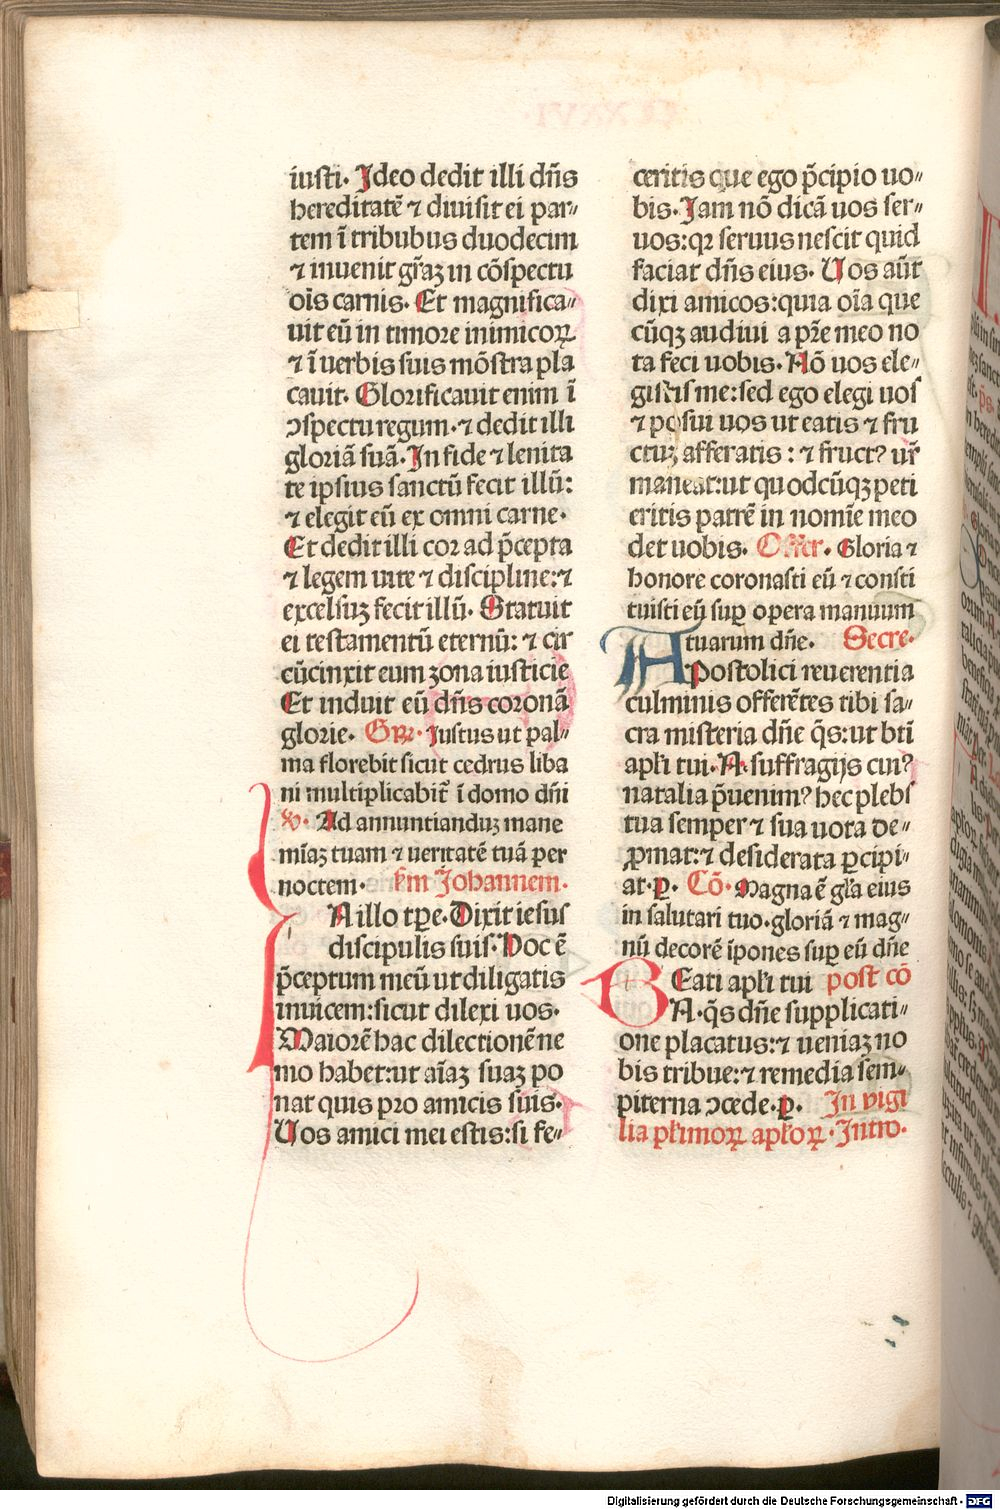 iusti. Ideo dedit illi dn̄s
hereditatē ⁊ diuisit ei par〃
tem ī tribubus duodecim
⁊ inuenit gr̄aꝫ in cōspectu
oīs carnis. Et magnifica〃
uit eū in timore inimicoꝝ
⁊ ī uerbis suis mōstra pla
cauit. Glorificauit enim ī
ↄspectu regum. ⁊ dedit illi
gloriā suā. In fide ⁊ lenita
te ipsius sanctū fecit illū:
⁊ elegit eū ex omni carne.
Et dedit illi cor ad p̄cepta
⁊ legem uite ⁊ discipline: ⁊
excelsuꝫ fecit illū. Statuit
ei testamentū eternū: ⁊ cir
cūcinxit eum zona iusticie
Et induit eū dn̄s coronā
glorie. Gꝛ. Iustus ut pal〃
ma florebit sicut cedrus liba
ni multiplicabit̄ ī domo dn̄i
℣. Ad annuntianduꝫ mane
mīaꝫ tuam ⁊ ueritatē tuā per
noctem. s̄m Johannem.
N illo tꝑe. Dixit iesus
discipulis suis. Hoc ē
p̄ceptum meū ut diligatis
inuicem: sicut dilexi uos.
Maiorē hac dilectionē ne
mo habet: ut aīaꝫ suaꝫ po
nat quis pro amicis suis.
Uos amici mei estis: si fe〃
ceritis que ego p̄cipio uo〃
bis. Iam nō dicā uos ser〃
uos: qꝛ seruus nescit quid
faciat dn̄s eius. Uos aūt
dixi amicos: quia oīa que
cūqꝫ audiui a pr̄e meo no
ta feci uobis. Nō uos ele〃
gistis me: sed ego elegi uos
⁊ posui uos ut eatis ⁊ fru
ctuꝫ afferatis: ⁊ fructꝰ ur̄
maneat: ut quodcūqꝫ peti
eritis patrē in nomīe meo
det uobis. Offer. Gloria ⁊
honore coronasti eū ⁊ consti
tuisti eū suꝑ opera manuum
tuarum dn̄e. Secre.
Apostolici reuerentia
culminis offerētes tibi sa〃
cra misteria dn̄e q̄s: ut bt̄i
apl̄i tui. N. suffragijs cuiꝰ
natalia p̄uenimꝰ hec plebs
tua semper ⁊ sua uota de〃
ꝓmat: ⁊ desiderata ꝑcipi〃
at. ꝑ. Cō. Magna ē gl̄a eius
in salutari tuo. gloriā ⁊ mag〃
nū decorē īpones suꝑ eū dn̄e
BEati apl̄i tui post cō
N. q̄s dn̄e supplicati〃
one placatus: ⁊ ueniaꝫ no
bis tribue: ⁊ remedia sem〃
piterna ↄcede. ꝑ. In vigi
lia pl̄imoꝝ apl̄oꝝ. Intro.
Digitalisierung gefördert durch die Deutsche Forschungsgemeinschaft - DFG